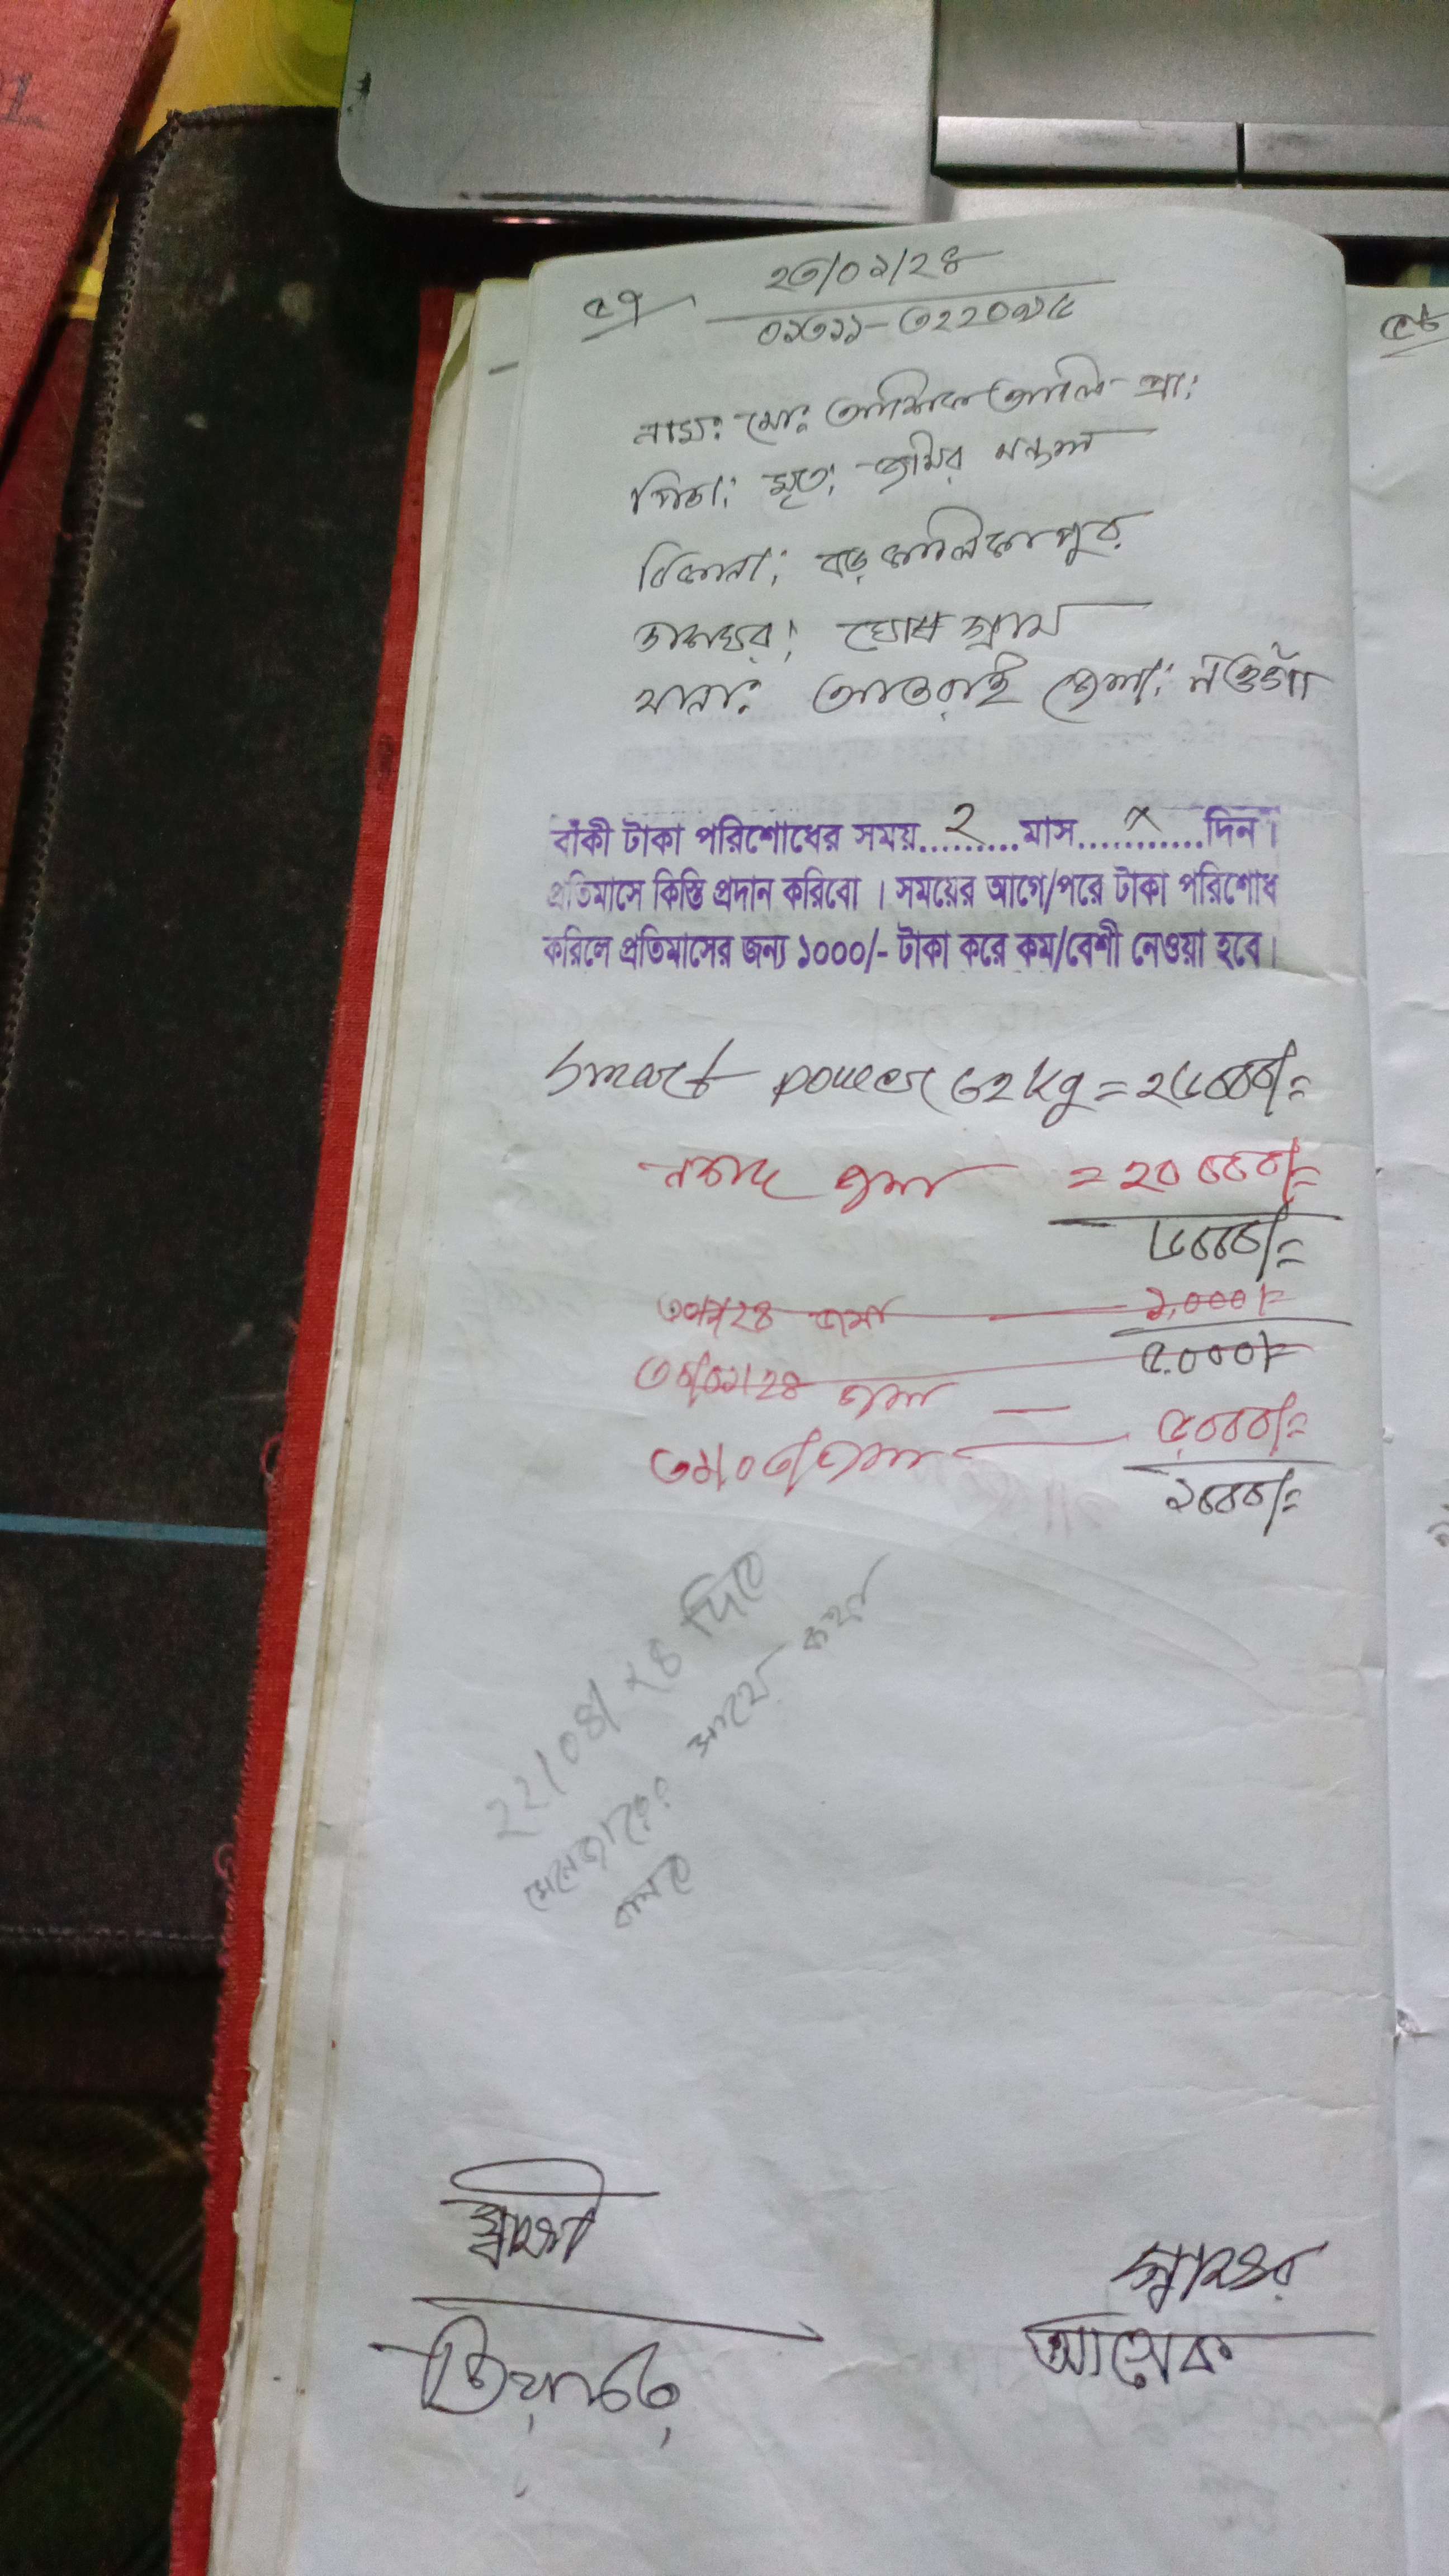 ৫৭
২৩/০১/২৪
০১৩১১-৩২২০৭১৫
নামঃ মোঃ আশিক আলি প্রাঃ
পিতাঃ মৃতঃ জমির মন্ডল
ঠিকানাঃ বড় কালিকাপুর
ডাকঘরঃ ঘোষ গ্রাম
থানাঃ আত্রাই জেলাঃ নওগাঁ
বাঁকী টাকা পরিশোধের সময়.....২....মাস.....x......দিন।
প্রতিমাসে কিস্তি প্রদান করিবো। সময়ের আগে/পরে টাকা পরিশোধ
করিলে প্রতিমাসের জন্য ১০০০/- টাকা করে কম/বেশী নেওয়া হবে।
Smart power ৩২kg = ২৬০০০/=
নগদ জমা = ২০০০০/=
৬০০০/=
জমা ১,০০০/=
৫,০০০/=
জমা
জমা — ৫০০০/=
১০০০/=
২২/০৪/২৪ দিবে
মেনেজারের সাথে কথা
বলবে
স্বাক্ষর
আসেক